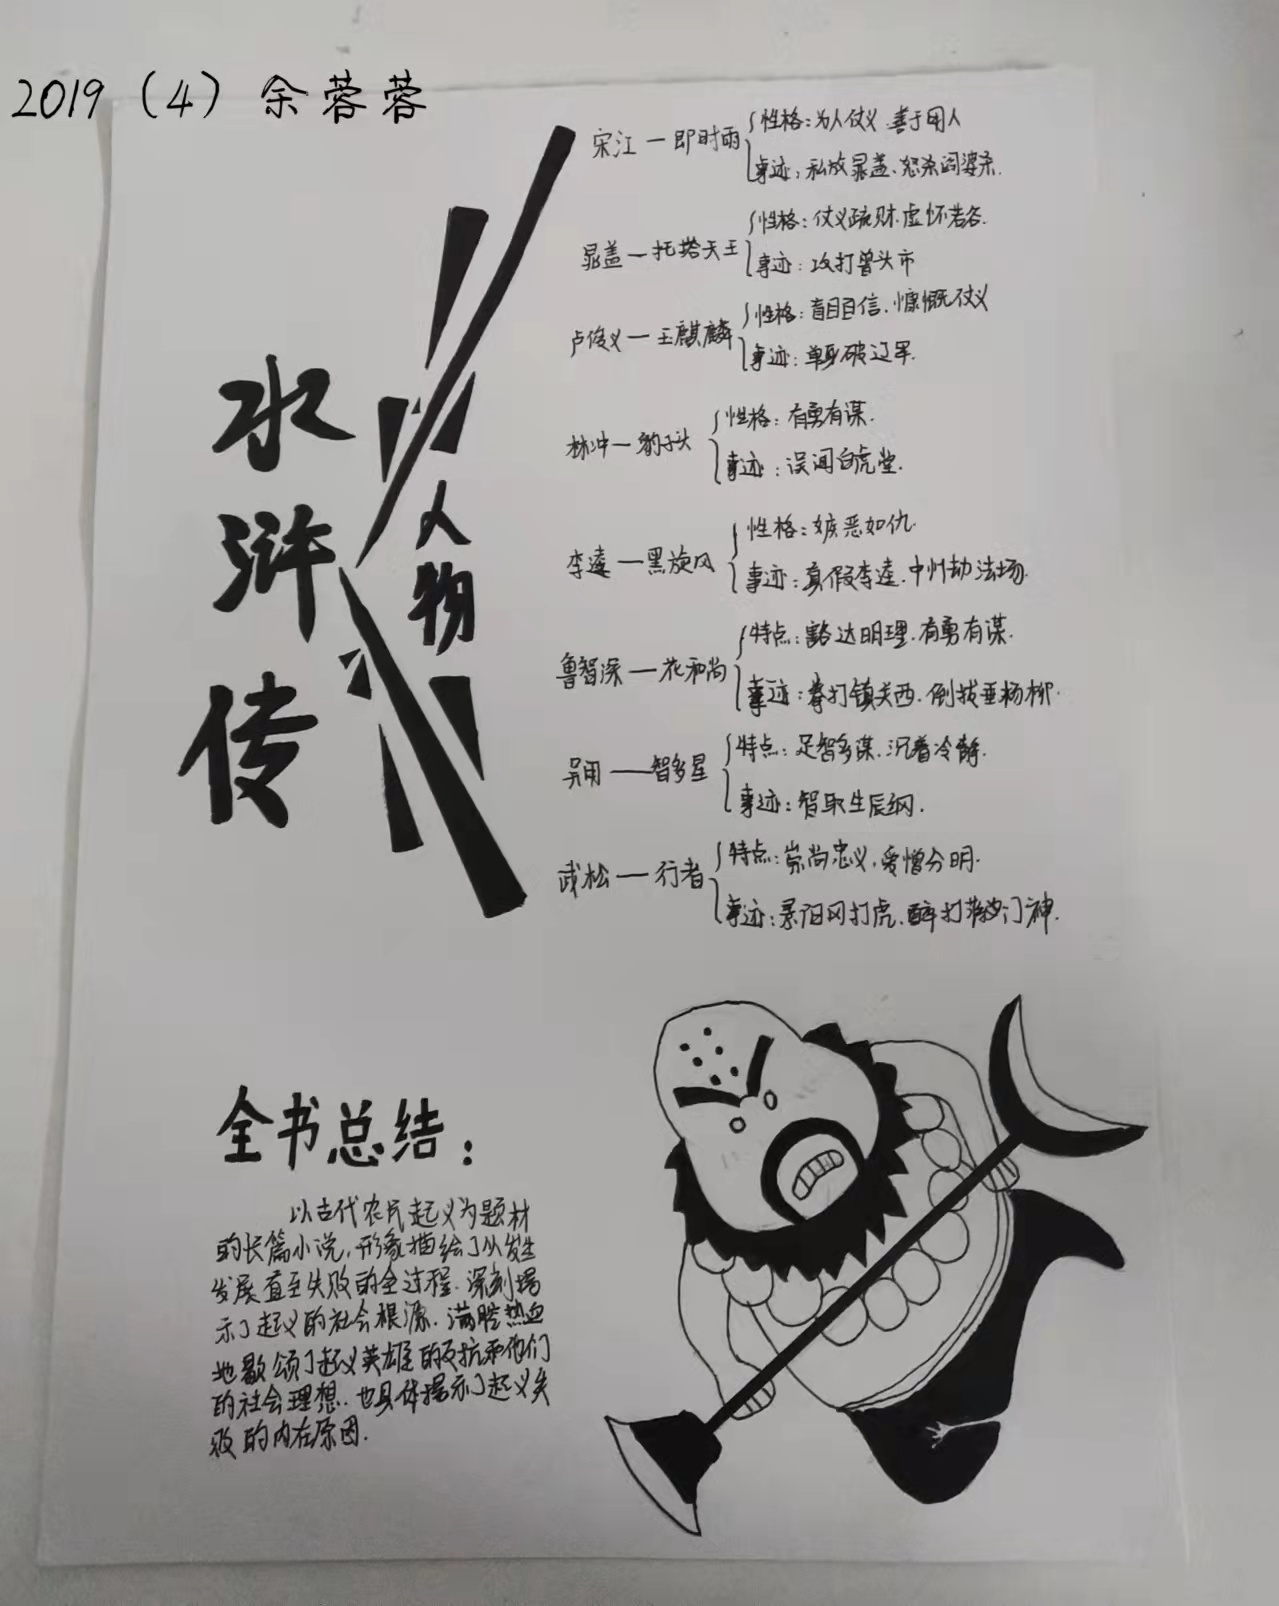 2019（4）余蓉蓉
水浒传
人物
宋江一即时雨
性格：为人仗义.善于用人
事迹：私放晁盖、怒杀阎婆杀.
晁盖一托塔天王
性格：仗义疏财.虚怀若谷.
事迹：攻打曾头市
卢俊义一玉麒麟
性格：盲目自信.慷慨仗义
事迹：单身破辽军.
林冲一豹子头
性格：有勇有谋.
事迹：误闯白虎堂.
李逵一黑旋风
性格：嫉恶如仇.
事迹：真假李逵.中州劫法场.
鲁智深一花和尚
特点：豁达明理.有勇有谋.
事迹：拳打镇关西.倒拔垂杨柳.
吴用一智多星
特点：足智多谋.沉着冷静.
事迹：智取生辰纲.
武松一行者
特点：崇尚忠义，爱憎分明.
事迹：景阳冈打虎.醉打蒋门神.
全书总结：
以古代农民起义为题材
的长篇小说，形象描绘了从发生
发展直至失败的全过程.深刻揭
示了起义的社会根源.满腔热血
地歌颂了起义英雄的反抗和他们
的社会理想.也具体揭示了起义失
败的内在原因.